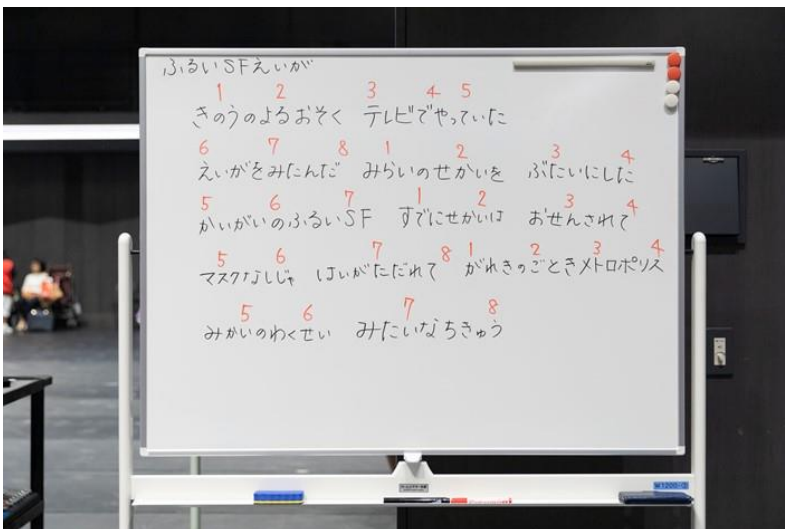 ふるいSFえいが
1 2 3 4 5
きのうのよるおそく テレビでやっていた
6 7 8 1 2 3 4
えいがをみたんだ みらいのせかいを ぶたいにした
5 6 7 1 2 3 4
かいがいのふるいSF すでにせかいは おせんされて
5 6 7 8 1 2 3 4
マスクなしじゃ はいがただれて がれきのごときメトロポリス
5 6 7 8
みかいのわくせい みたいなちきゅう